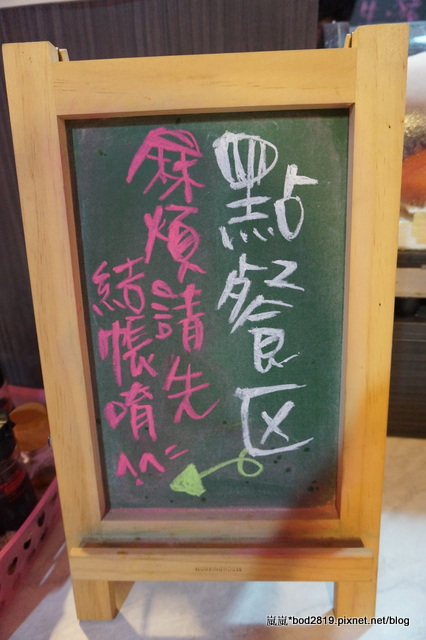 點餐区
麻煩請先
結帳唷
^.^=
嵐嵐*bod2819.pixnet.net/blog